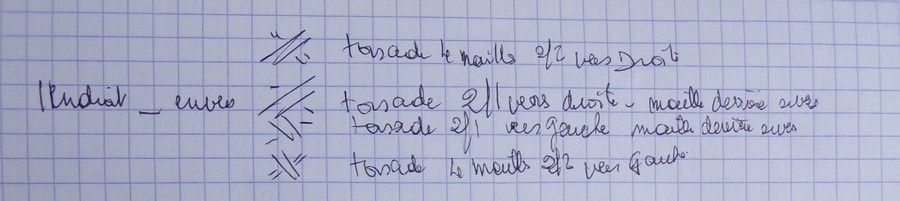 torsade 4 maille 2/2 vers Droite
| Endroit _ envers torsade 2/1 vers droite - maille derrière envers
torsade 2/1 vers gauche maille derrière envers
torsade 4 mailles 2/2 vers Gauche